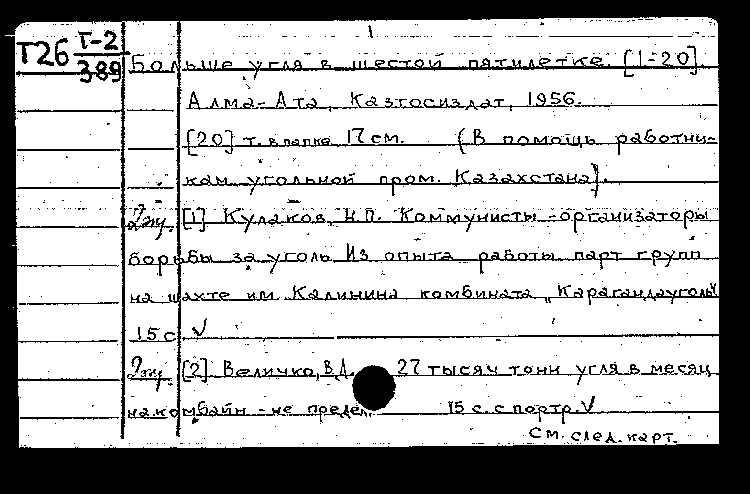 1
Т26 Т-2/389
Больше угля в шестой пятилетке. [1-20].
Алма-Ата, Казгосиздат, 1956.
[20] т. в папке 17 см. (В помощь работни-
кам угольной пром. Казахстана).
2экз. [1] Кулаков, Н.П. Коммунисты-организаторы
борьбы за уголь. Из опыта работы парт групп
на шахте им. Калинина комбината „Карагандауголь"
15 с. √
2экз. [2] Величко, В.А. 27 тысяч тонн угля в месяц
на комбайн - не предел. 15 с. с портр. √
См. след. карт.